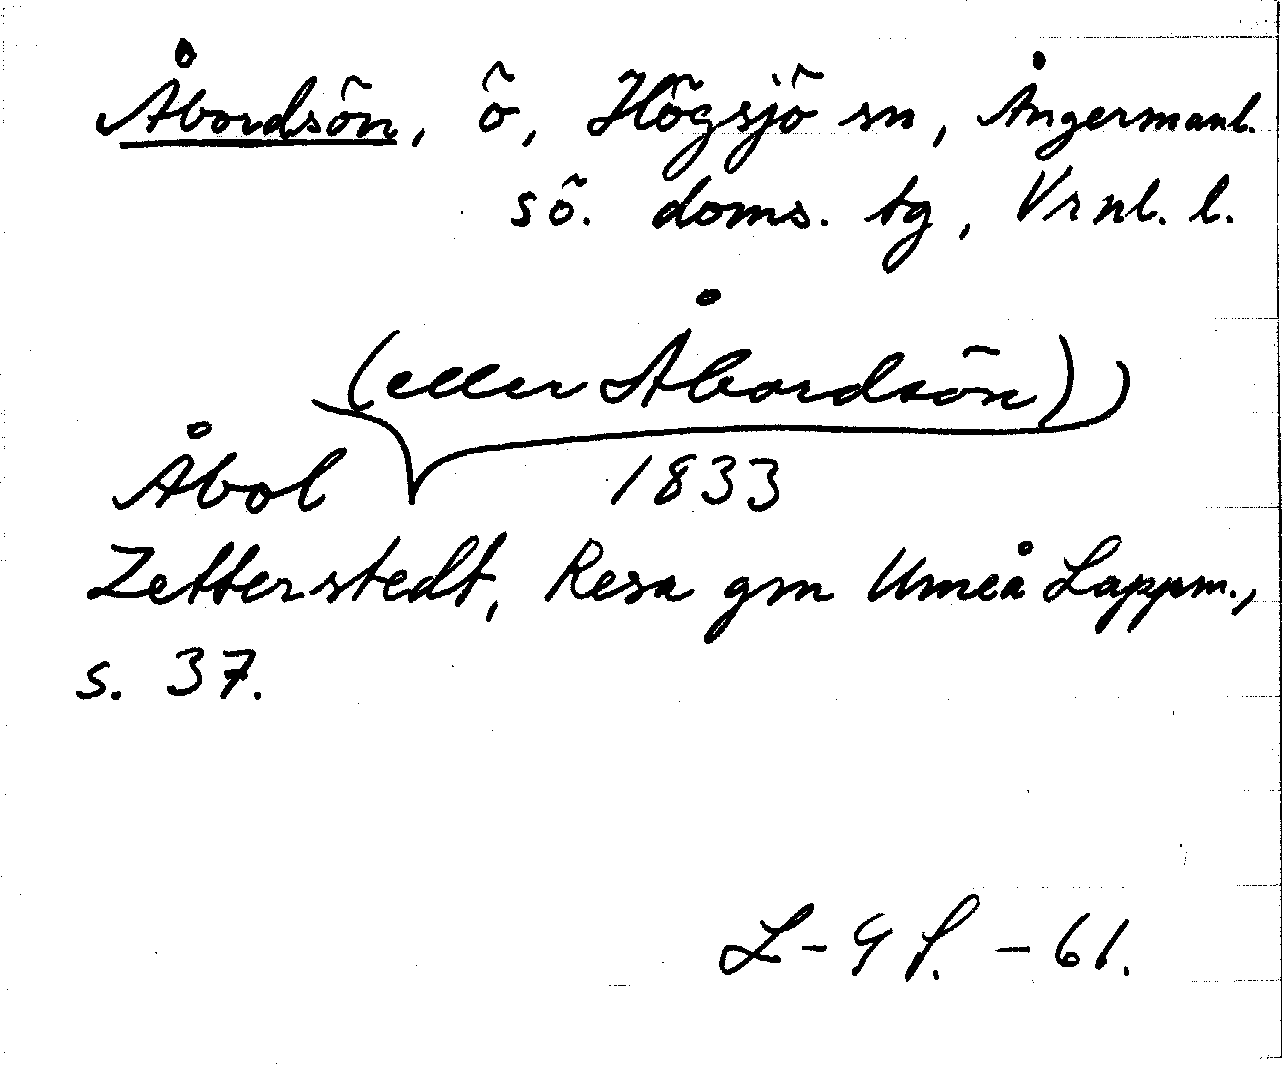 Åbordsön, ö, Högsjö sn, Ångermanl.
sö. doms. tg, Vrnl. l.
(eller Åbordsön))
Åbol 1833
Zetterstedt, Resa gm Umeå Lappm.,
s. 37.
L-G f. - 61.